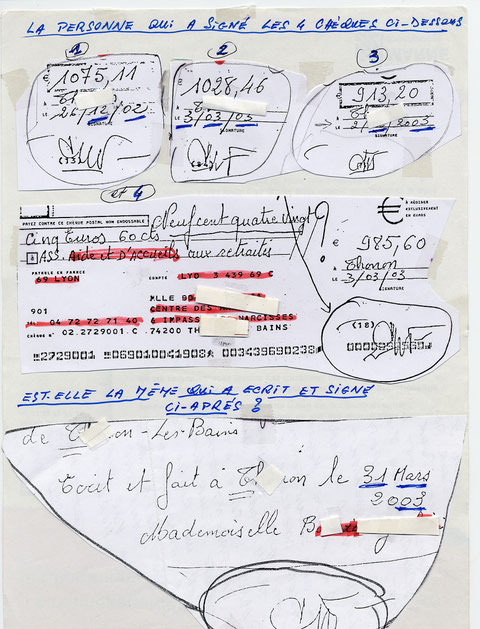 LA PERSONNE QUI A SIGNÉ LES 4 CHÈQUES CI-DESSOUS
1
2
3
1075,11
À
LE 26/12/02
SIGNATURE
1028,46
À
LE 3/03/03
SIGNATURE
913,20
À
LE 2003
SIGNATURE
et 4
PAYEZ CONTRE CE CHÈQUE POSTAL NON ENDOSSABLE
Neuf cent quatre vingt
Cinq Euros 60 cts
À ASS. Aide et D'Accueils aux retraités
€
À RÉDIGER
EXCLUSIVEMENT
EN EUROS
985,60
À Thonon
LE 3/03/03
SIGNATURE
PAYABLE EN FRANCE
69 LYON
COMPTE LYO 3 439 69 C
MLLE BO
CENTRE DES
901
TEL. 04 72 72 71 40
6 IMPASS NARCISSES
CHÈQUE N° 02.2729001.C
74200 TH BAINS
(18)
2729001 069010041908 003439690238
EST-ELLE LA MÊME QUI A ECRIT ET SIGNÉ
CI-APRÉS ?
de Th on-Les-Bains
Ecrit et fait à Th on le 31 Mars
2003
Mademoiselle B